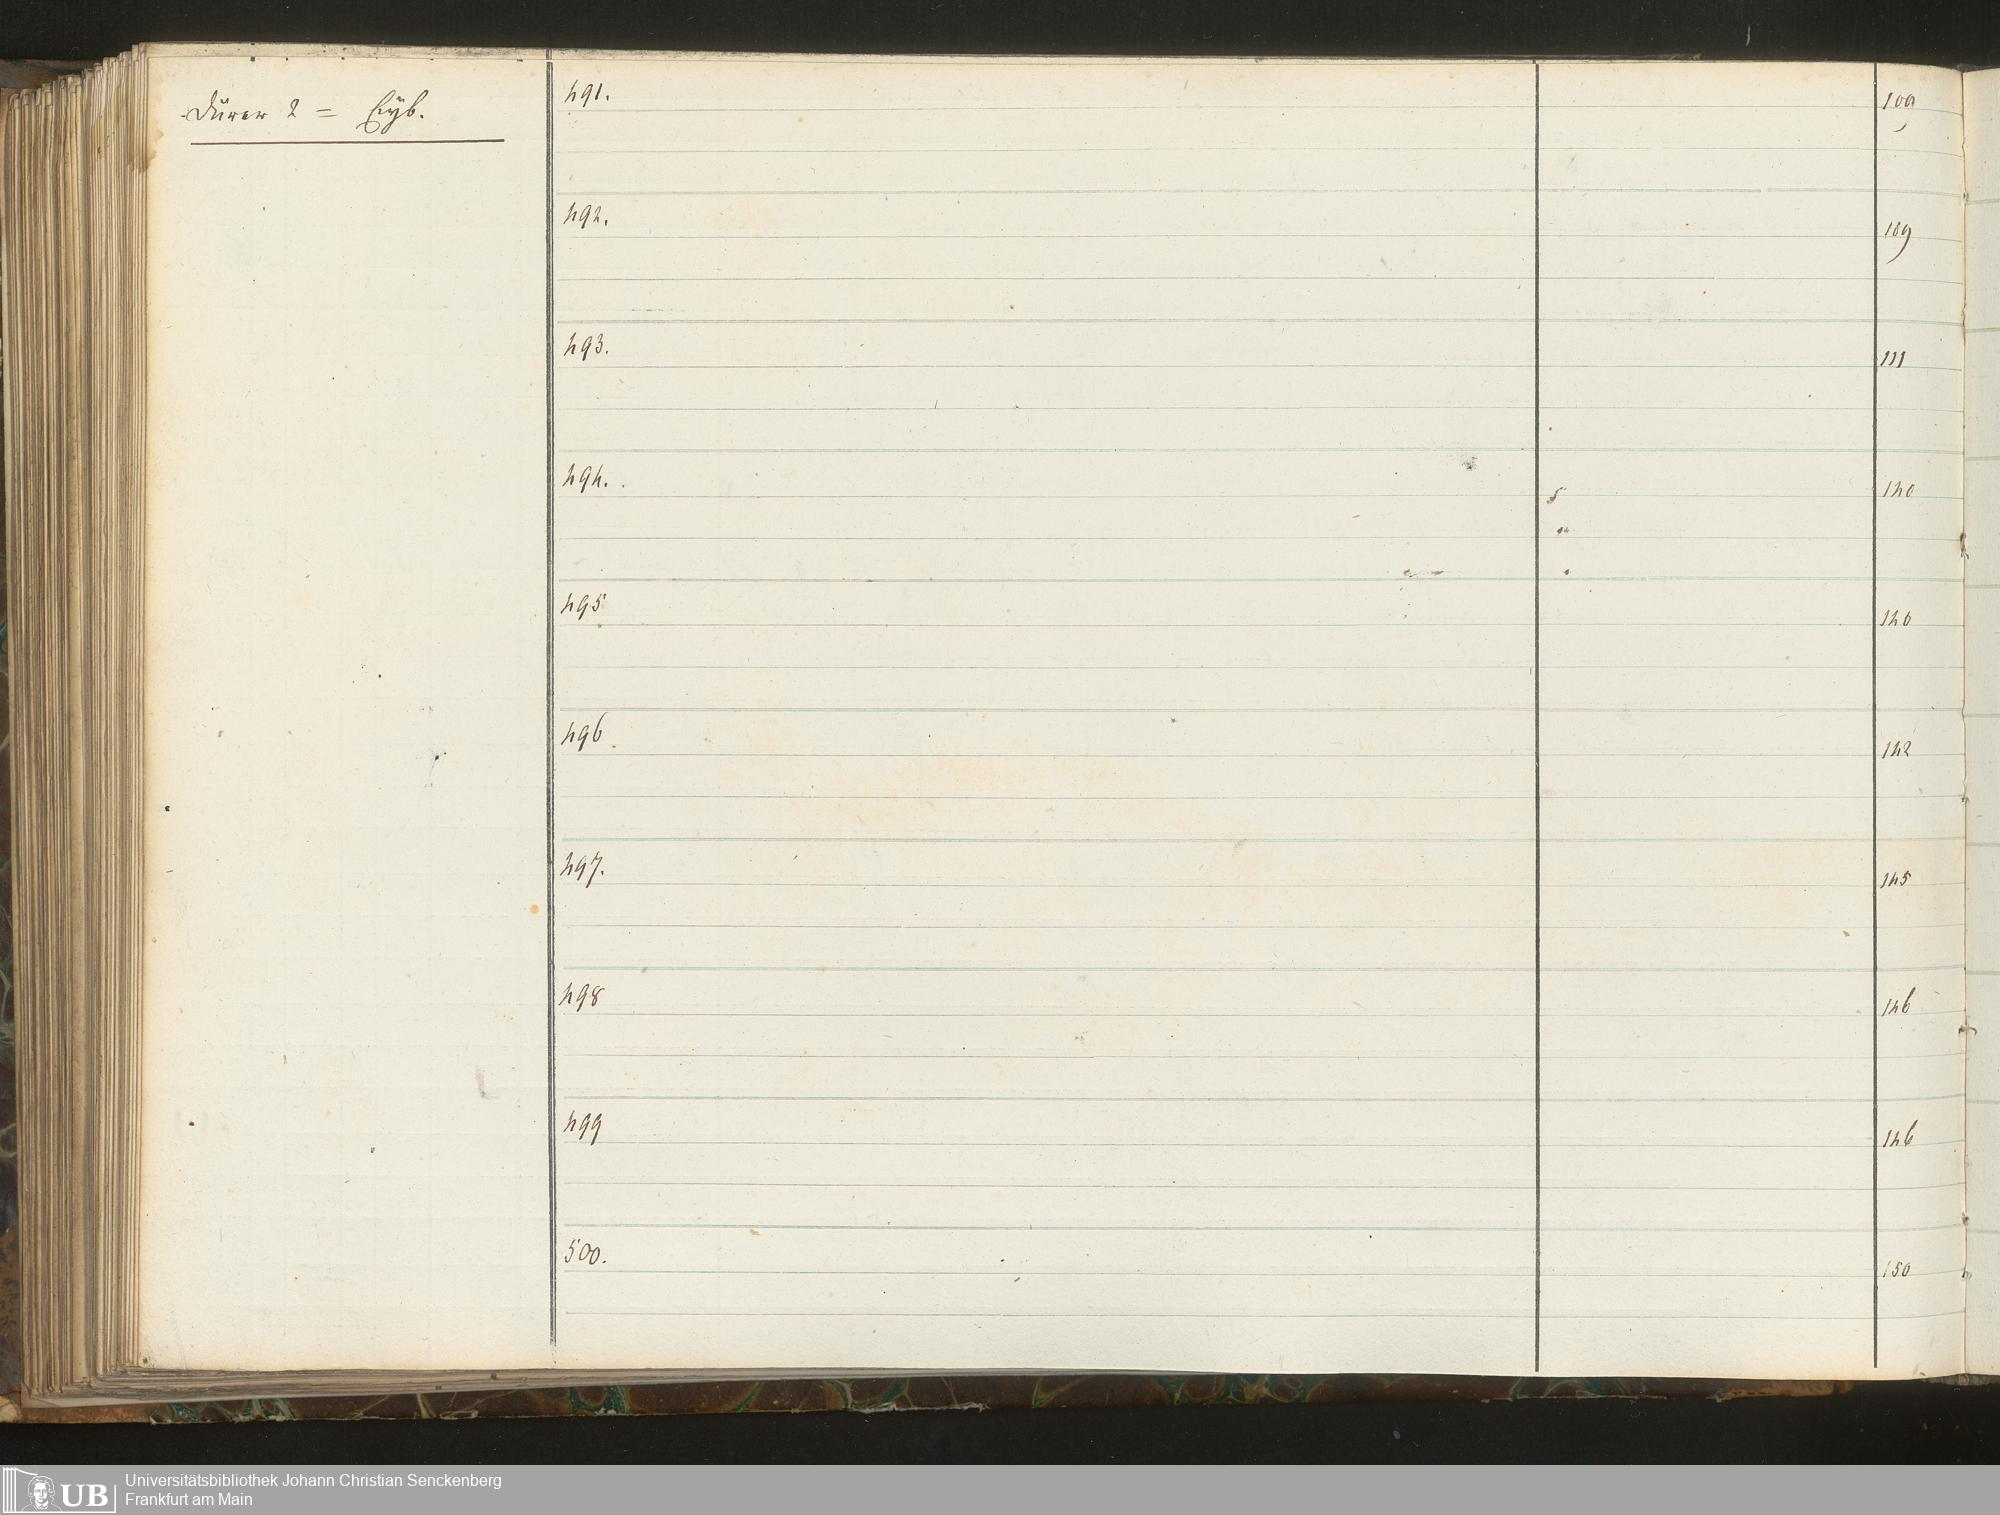 Dürer 2 = Eyb.
491. 109
492. 109
493. 111
494. 140
495 140
496 142
497. 145
498 146
499 146
500. 150
UB
Universitätsbibliothek Johann Christian Senckenberg
Frankfurt am Main